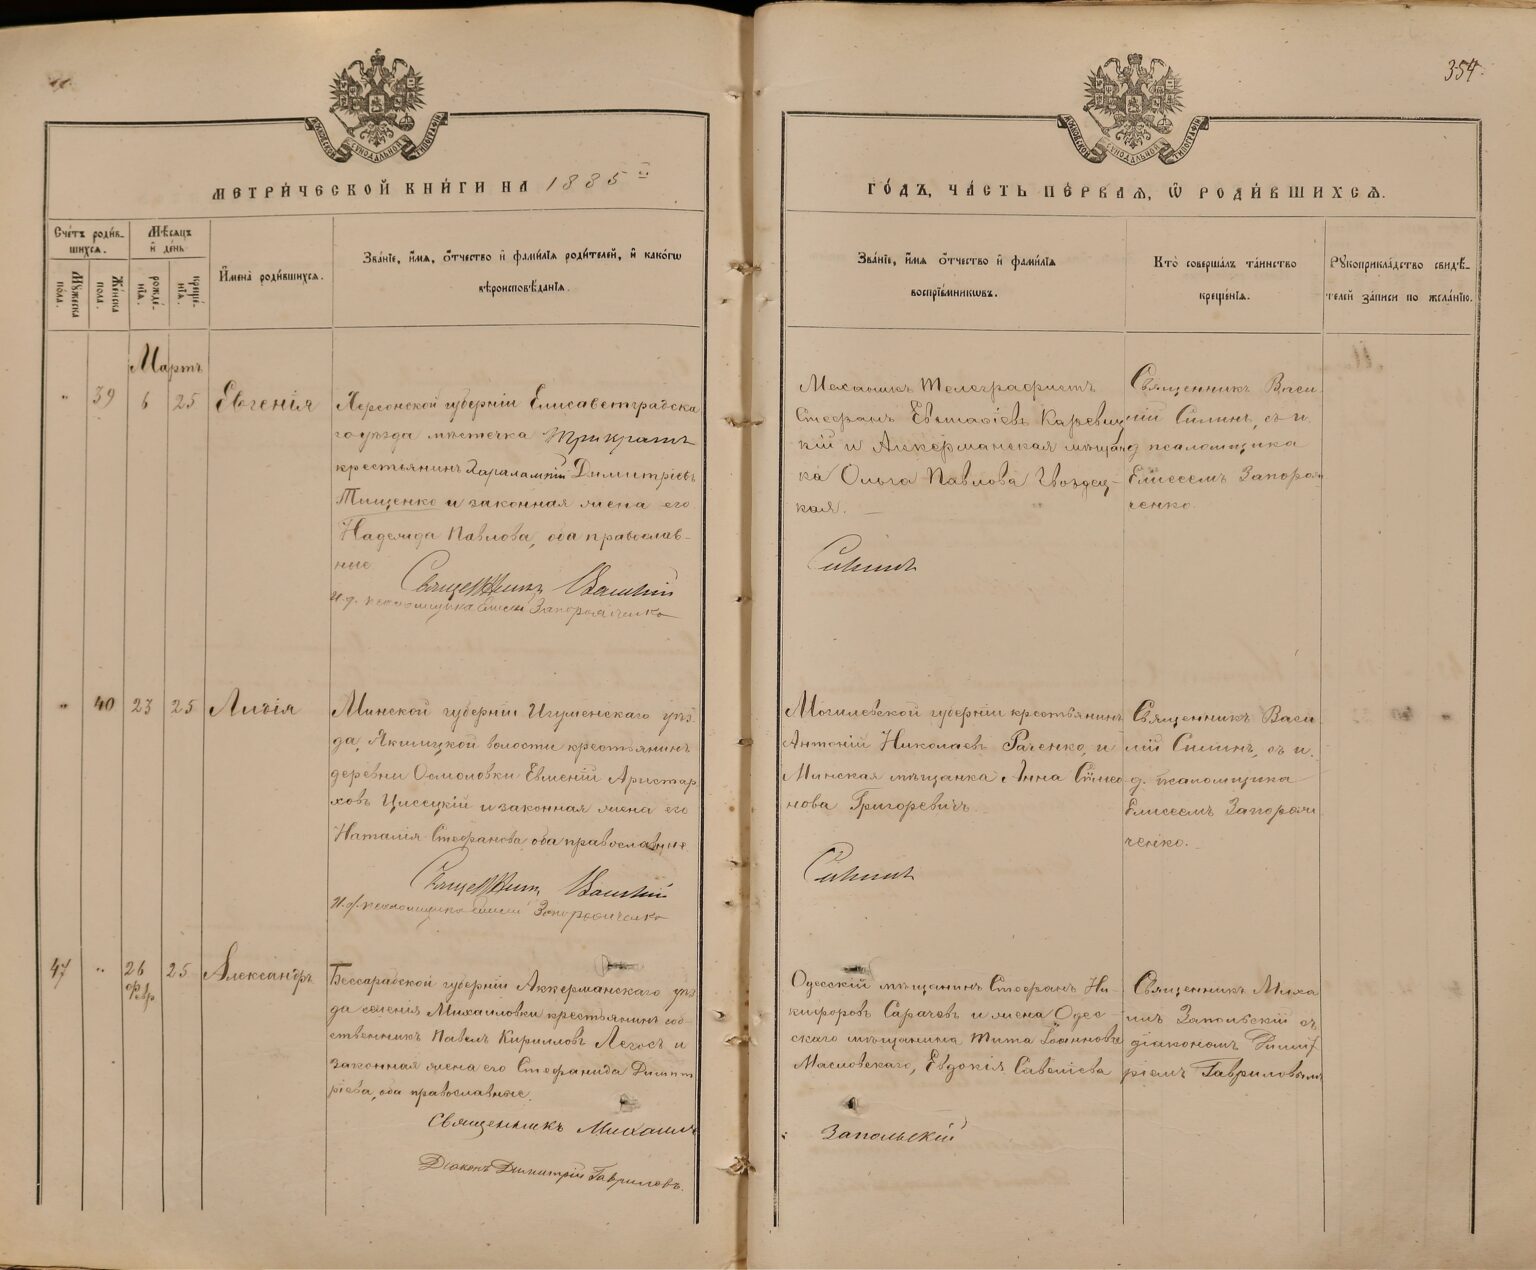 354.
КІЕВСКОЙ СѴНОДАЛЬНОЙ ТИПОГРАФІИ
КІЕВСКОЙ СѴНОДАЛЬНОЙ ТИПОГРАФІИ
МЕТРИ́ЧЕСКОЙ КНИ́ГИ НА 1885 й
ГО́ДЪ, ЧА́СТЬ ПЕ́РВАѦ, Ѡ҆ РОДИ́ВШИХСѦ.
Сче́тъ роди́в-
шихсѧ.
Мꙋжеска пола.
Же́нска пола.
Мѣ́сѧцъ
и҆ де́нь
рожде́-нїѧ.
креще́-нїѧ.
И҆мена̀ роди́вшихсѧ.
Зва́нїе, и҆́мѧ, ѻ҆́тчество и҆ фами́лїѧ роди́телей, и҆ како́гѡ
вѣроисповѣ́данїѧ.
Зва́нїе, и҆́мѧ ѻ҆́тчество и҆ фами́лїѧ
воспрїе́мникѡвъ.
Кто̀ соверша́лъ та́инство
креще́нїѧ.
Рꙋкоприкла́дство свидѣ́-
телей за́писи по жела́нїю.
Мартъ
" 39 6 25 Евгенія
Херсонской губерніи Елисаветградска
го уѣзда мѣстечка Трикратъ
крестьянинъ Харалампій Димитріевъ
Тищенко и законная жена его
Надежда Павлова, оба православ-
ные
Священникъ Василій
И. д. псаломщика Елисей Запорожченко
Механикъ Телеграфистъ
Стефанъ Евстафіевъ
кій и Аккерманская мѣщан
ка Ольга Павлова Гвоздец-
кая.
Силинъ
Священникъ Васи
лій Силинъ, съ и
д псаломщика
Елисеемъ Запорож
ченко.
" 40 23 25 Лидія
Минской губерніи Игуменскаго уѣз
да, Якшицкой волости крестьянинъ
деревни Осмоловки Евгеній Аристар
ховъ и законная жена его
Наталія Стефанова, оба православные
Священникъ Василій
И. д. псаломщика Елисей Запорожченко
Могилевской губерніи крестьянинъ
Антоній Николаевъ Раченко, и
Минская мѣщанка Анна Сѵмео
нова Григоревичъ
Силинъ
Священникъ Васи
лій Силинъ, съ и.
д. псаломщика
Елисеемъ Запорож
ченко.
47 " 26 Февр. 25 Александръ
Бессарабской губерніи Аккерманскаго уѣз
да селенія Михаиловки крестьянинъ соб
ственникъ Павелъ Кирилловъ Легосъ и
законная жена его Стефанида Димит
ріева, оба православные.
Священникъ Михаилъ
Діаконъ Димитрій Гавриловъ.
Одесскій мѣщанинъ Стефанъ Ни-
кифоровъ Сарачевъ и жена Одес-
скаго мѣщанина Тита Іоаннова
Масловскаго, Евдокія Савеліева
Запольскій
Священникъ Миха
илъ Запольскій съ
діакономъ Димит
ріемъ Гавриловымъ